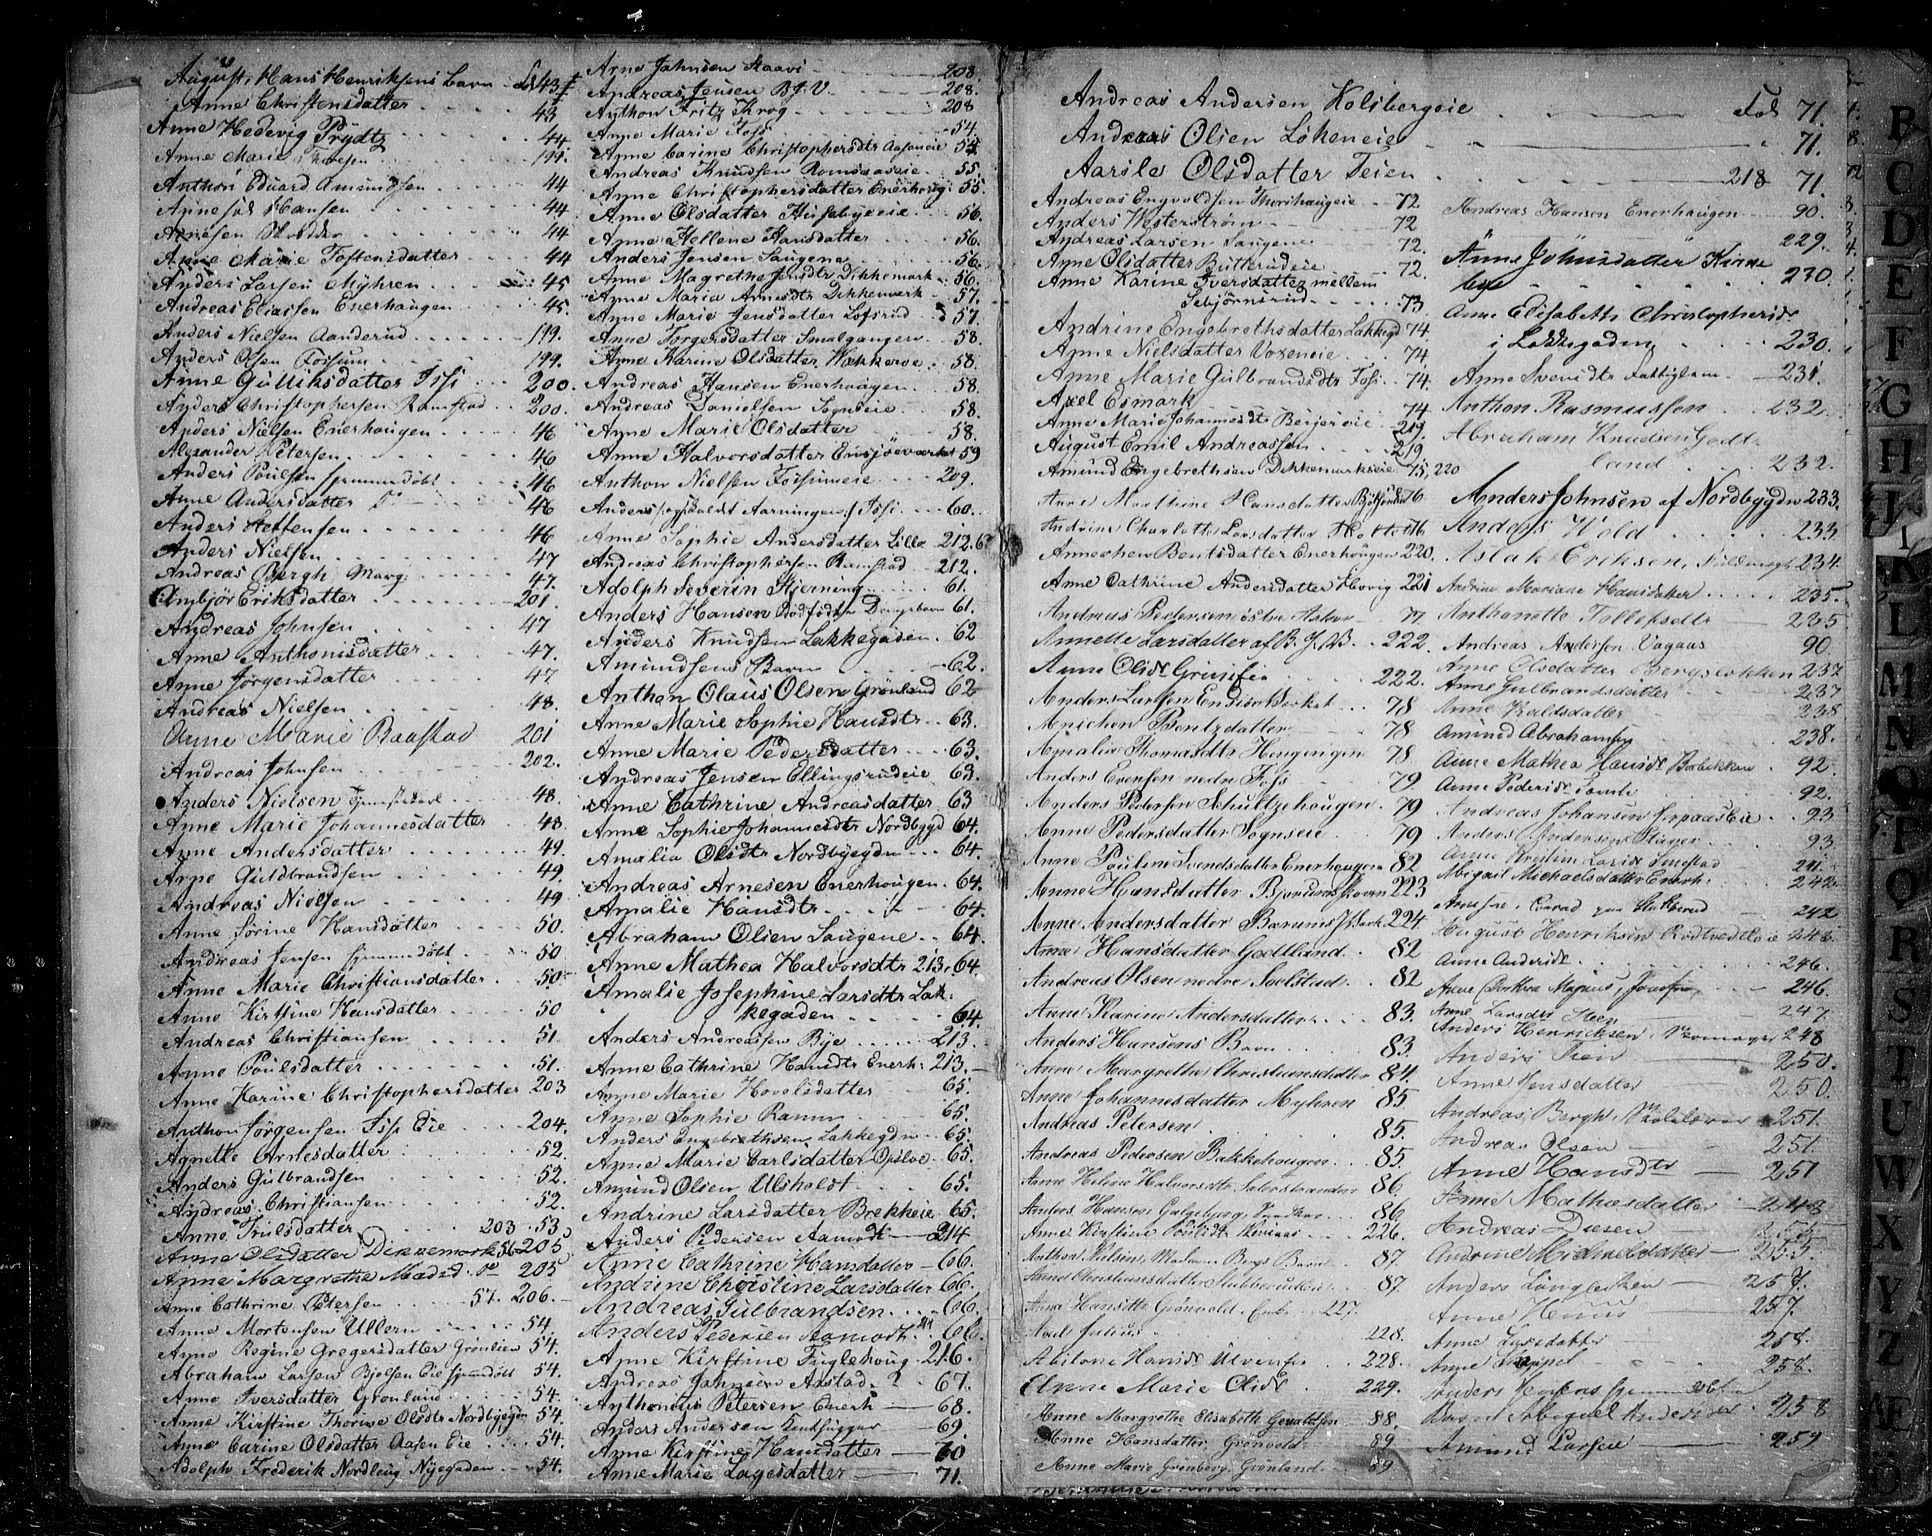 August, Hans Henriksens Barn Fol 43
Anne Christensdatter 43
Anne Hedevig Prydtz 44
Anne Marie Thoresen 199.
Anthon Eduard Amundsen 44
Hansen 44
44
Anne Marie Toftensdatter 44
Anders Larsen Myhren 45
Andreas Eliassen Enerhaugen 45.
Anders Nielsen Aanderud 199.
Anders Olsen Fossum 199.
Anne Gulliksdatter Fossi 200.
Anders Christophersen Ramstad 200.
Anders Nielsen Enerhougen 46
Alexander Petersen 46
Anders Poulsen hjemmedøbt 46
Anne Andersdatter do 46
Anders Steffensen 46
Anders Nielsen 47
Andreas Bergh Marg. 47.
Ambjør Eriksdatter 201.
Andreas Johnsen 47
Anne Anthonisdatter 47.
Anne Jörgensdatter 47
Andreas Nielsen 48.
Anne Marie Baastad 201
Andreas Johnsen 202.
Anders Nielsen hjemmedøbt 48.
Anne Marie Johannesdatter 48.
Anne Andersdatter 49.
Arne Guldbrandsen 49.
Andreas Nielsen 49
Anne Sorine Hansdatter 50.
Andreas Jensen hjemmedøbt 50
Anne Marie Christiansdatter 50.
Anne Kirstine Hansdatter 50
Andreas Christiansen 51
Anne Poulsdatter 51.
Anne Karine Christophersdatter 203
Anthon Jörgensen Foss Eie 204.
Agnette Arnesdatter 52.
Anders Gulbrandsen 52.
Andreas Christiansen 52.
Anne Trulsdatter 203 53
Anne Olsdatter Dikkemark 56 205
Anne Margrethe Madsd. do 205
Anne Cathrine Petersen 57. 206.
Anne Mortensen Ullern 54.
Anne Regine Gregersdatter Grønlien 54.
Abraham Larsen Bjølsen Eie hjemmedøbt 54.
Anne Iversdatter Grønland 54.
Anne Kirstine Thorine Olsdtr Nordbygdn 54.
Anne Carine Olsdatter Aasen Eie 54.
Adolph Frederik Nordling Nyegaden 54.
Arne Johnsen Staavi 208.
Andreas Jensen B.J.V. 208.
Anthon Fritz Krog 208
Anne Marie Foss 54.
Anne Carine Christophersdtr Aaseneie 54
Andreas Knudsen Romsaaseie 55.
Anne Christophersdatter Enerhoug. 55.
Anne Olsdatter Husebyeeie 56.
Anne Hellene Hansdatter 56.
Anders Jensen Saugene 56.
Anne Magrethe Jensdtr Dikkemark 56.
Anne Maria Arnesdtr Dikkemark 57.
Anne Marie Jensdatter Lofsrud 57.
Anne Torgersdatter Smalgangen 58.
Anne Karine Olsdatter Wækkerøe 58.
Andreas Hansen Enerhougen 58.
Andreas Danielsen Sognseie 58.
Anne Marie Olsdatter 58.
Anne Halvorsdatter Ensjøeværket 59
Anthon Nielsen Fossumeie 209.
Anders Aarningen Fossi 60.
Anne Sophie Andersdatter Lilla 212. 6
Andreas Christophersen Ramstad 212.
Adolph Severin Hjerning 61.
Anders Hansen 61.
Anders Knudsen Lakkegaden 62
Amundsens Barn 62.
Anthon Olaus Olsen Grønland 62
Anne Marie Sophie Hansdtr 63.
Anne Marie Pedersdatter 63.
Andreas Jensen Ellingsrudeie 63.
Anne Cathrine Andreasdatter 63
Anne Sophie Johannesdtr Nordbygd 64.
Amalia Olsdtr Nordbyegdn 64.
Andreas Arnesen Enerhougen 64.
Amalie Hansdtr 64.
Abraham Olsen Saugene 64.
Anne Mathea Halvorsdtr 213. 64.
Amalie Josephine Larsdtr Lak-
kegaden 64.
Anders Andreassen Bye 213.
Anne Cathrine Hansdtr Enerh. 213.
Anne Marie Hovelsdatter 65.
Anne Sophie Ramm 65.
Anders Engebrethsen Lakkegdn 65.
Anne Marie Carlsdatter Opsloe 65.
Amund Olsen Ulsholdt 65.
Andrine Larsdatter Brekkeie 65.
Anders Pedersen Aamodt 214
Anne Cathrine Hansdatter 66.
Andrine Christine Larsdatter 66.
Andreas Gulbrandsen 66.
Anders Pedersen Aamodt 66.
Anne Kirstine Fuglehoug 216.
Andreas Johnsen Aastad 67.
Anthonius Petersen Enerh 68.
Anders Andersen Tankhugger 69.
Anne Kirstine Hansdatter 70
Anne Marie Lagesdatter 71.
Andreas Andersen Kolsbergeie Fol 71.
Andreas Olsen Løkeneie 71.
Aasile Olsdatter Teien 218 71.
Andreas Engvoldsen Thorshaugeie 72.
Anders Westerstrøm 72
Andreas Larsen Saugene 72.
Anne Olsdatter Butterudeie 72.
Anne Karine Iversdatter mellem
Sebjörnsrud 73
Andrine Engebrethsdatter Lakkegd 74.
Anne Nielsdatter Voxeneie 74
Anne Marie Gulbrandsdtr Foss 74.
Axel Esmark 74
Anne Marie Johannesdtr Beijereie 219.
August Emil Andreassen 219.
Amund Engebrethsen Dikkemarkseie 75, 220
Anne Marthine Hansdatter 76
Andrine Charlotte Larsdatter 76
Annechen Bentsdatter Enerhougen 220.
Anne Cathrine Andersdatter Høvig 221
Andreas Pedersen østre Asker 77
Annette Larsdatter af B.J.V. 222.
Anne Olsdt Griniseie 222.
Anders Larsen Endsøe Værket 78
Anichen Bentzdatter 78
Amalia Thomasdtr Hengingen 78
Anders Evensen nedre Foss 79
Anders Pedersen Schultzehougen 79
Anne Pedersdatter Sognseie 79
Anne Pouline Svendsdatter Enerhaugen 82
Anne Hansdatter Bjerdumshoven 223
Anne Andersdatter Bærums 224.
Anne Hansdatter Godtland 82
Andreas Olsen nedre Soelstad 82
Anne Karine Andersdatter 83.
Anders Hansens Barn 83.
Anne Margrethe Christiansdatter 84.
Anne Johannesdatter Myhren 85
Andreas Petersen 85.
Andreas Pedersen Bakkehougen 85.
Anne Helene Halvorsdtr 86.
Anders Hansen 86
Anne Kirstine Poulsdt 226.
Anthon Nielsen, Madam Bergs Barn 87.
Anne Christiansdatter Stubberudeie 87.
Anne Hansdtr Grønvold Enb. 227
Axel Julius 228.
Abilone Hansdt Ulvenseie 228.
Anne Marie Olsdt 229.
Anne Margrethe Elisabeth Gevaldsen 88
Anne Hansdatter Grönvold 89
Anne Marie Grönberg, Grönland 89
Andreas Hansen Enerhaugen 90.
229.
Anne Johnsdatter Kirke
bye 230.
Anne Elisabeth Christophersdt
i Lakkegaden 230.
Anne Svendsdtr Fattiglem 231
Anthon Rasmussen 232
Abraham Knudsen Godt-
land 232.
Anders Johnsen af Nordbygdn 233.
Anders Wold 233
Aslak Eriksen, Fuldmægt 234.
Andrine Mariane Hansdatter 235.
Anthonette Tollefsdtr 235
Andreas Andersen Vagaas 90
Anne Olsdatter Bergsløkken 237
Anne Gulbrandsdatter 237
Anne Knudsdatter 238
Amund Abrahamsen 238.
Anne Mathea Hansdt Bakken 92.
Anne Pedersdt 92.
Andreas Johansen 93
Anders Andersen Hager 93.
Anne Kristine Larsdt 241.
Abigail Michaelsdatter Enerh. 242.
Conrad paa Stubberud 242
August Henriksen Rødtvedteie 243.
Anne Andersdt 246.
Anne Dorthea 246.
Anne Larsdtr Steen 247
Anders Henricksen Skomager 248
Anders Steen 250.
Anne Jensdatter 250.
Andreas Bergh, Skolelærer 251.
Andreas Olsen 251.
Anne Hansdtr 251
Anne Mathæsdatter 248
Andreas Diesen
Andrine Michaelsdatter 255.
Anders Langløkken 257.
Anne Huus 257.
Anne Larsdatter 258.
Anne 258.
Anders Jensens hjemmedøbt
Barn Andersen 258
Amund Larsen 259
B
C
D
E
F
G
H
I
K
L
M
N
O
P
Q
R
S
T
U
W
X
Y
Z
Æ
Ø